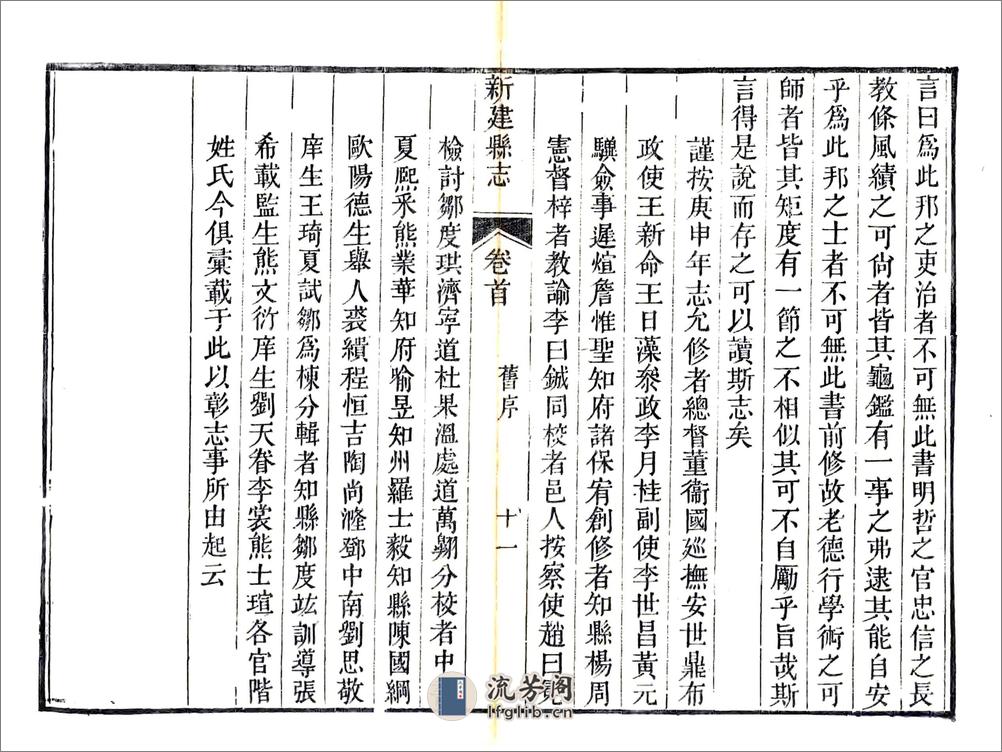 言曰爲此邦之吏治者不可無此書明哲之官忠信之長
教條風績之可尙者皆其龜鑑有一事之弗逮其能自安
乎爲此邦之士者不可無此書前修故老德行學術之可
師者皆其矩度有一節之不相似其可不自勵乎旨哉斯
言得是說而存之可以讀斯志矣
謹按庚申年志允修者總督董衞國廵撫安世鼎布
政使王新命王日藻叅政李月桂副使李世昌黃元
驥僉事遲煊詹惟聖知府諸保宥創修者知縣楊周
憲督梓者教諭李曰鋮同校者邑人按察使趙曰
新建縣志
卷首
舊序
十一
檢討鄒度珙濟寧道杜果溫處道萬翱分校者中
夏熈釆熊業華知府喻昱知州羅士毅知縣陳國綱
歐陽德生舉人裘纘程恒吉陶尚漋鄧中南劉思敬
庠生王琦夏試鄒爲棟分輯者知縣鄒度竑訓導張
希載監生熊文衍庠生劉天眷李裳熊士瑄各官階
姓氏今俱彚載于此以彰志事所由起云
流芳閣
lfglib.cn